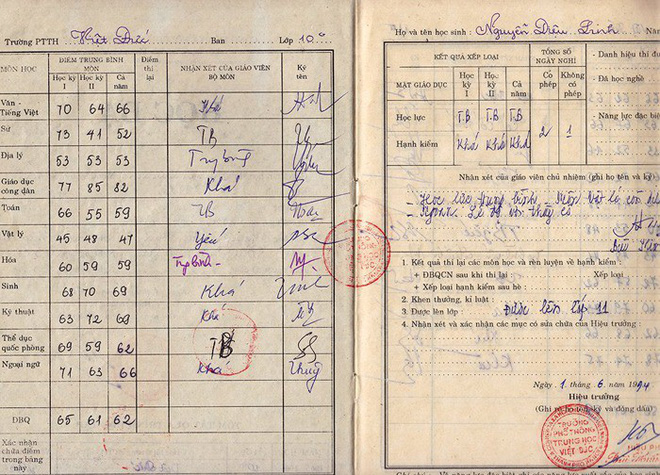 Trường PTTH Việt Đức Ban Lớp 10
MÔN HỌC ĐIỂM TRUNG BÌNH MÔN Điểm thi lại NHẬN XÉT CỦA GIÁO VIÊN BỘ MÔN Ký tên
Học kỳ I Học kỳ II Cả năm
Văn - Tiếng Việt 70 64 66 Khá
Sử 73 41 52 TB
Địa lý 53 53 53 Trung bình
Giáo dục công dân 77 85 82 Khá
Toán 66 55 59 TB
Vật lý 45 48 47 Yếu
Hóa 60 59 59
Sinh 68 70 69 Khá
Kỹ thuật 63 72 69 Khá
Thể dục quốc phòng 69 59 62 TB
Ngoại ngữ 71 63 66 Khá Thuỷ
ĐBQ 65 61 62
Xác nhận
chữa điểm
trong bảng
này
Họ và tên học sinh: Nguyễn Diệu Linh Năm
KẾT QUẢ XẾP LOẠI TỔNG SỐ NGÀY NGHỈ
MẶT GIÁO DỤC Học kỳ I Học kỳ II Cả năm Có phép Không có phép
Học lực T.B T.B T.B 2 1
Hạnh kiểm Khá Khá Khá
- Danh hiệu thi đu
- Đã học nghề
- Năng lực đặc biệ
Nhận xét của giáo viên chủ nhiệm (ghi họ tên và ký)
- Học lực trung bình - Môn Vật lí còn
- Ngoan. Lễ độ với thầy cô
1. Kết quả thi lại các môn học và rèn luyện về hạnh kiểm:
+ ĐBQCN sau khi thi lại Xếp loại
+ Xếp loại hạnh kiểm sau hè:
2. Khen thưởng, kỉ luật:
3. Được lên lớp: Được lên lớp 11
4. Nhận xét và xác nhận các mục có sửa chữa của Hiệu trưởng:
Ngày 1 tháng 6 năm 1994
Hiệu trưởng
(Ghi rõ họ tên ký và đóng dấu)
TRƯỜNG
PHỔ THÔNG
TRUNG HỌC
VIỆT ĐỨC